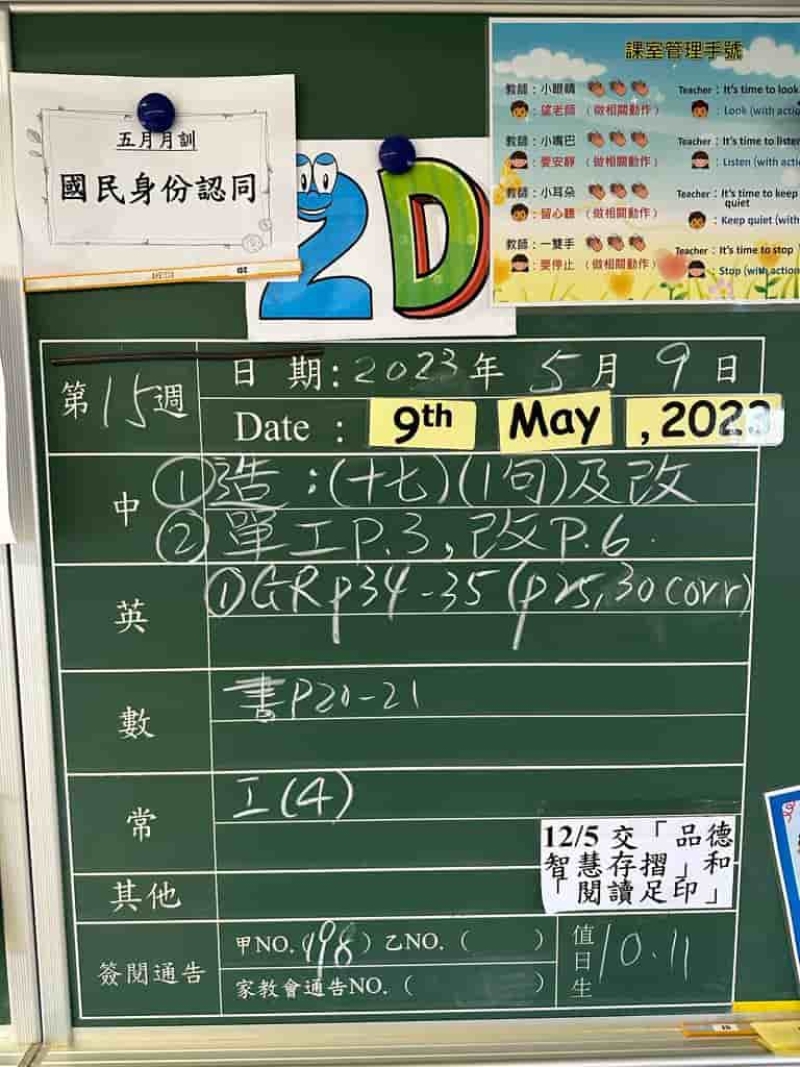 五月月訓
國民身份認同
2D
課室管理手號
教師：小眼睛
望老師（做相關動作）
Teacher：It's time to look
Look (with actio
教師：小嘴巴
要安靜（做相關動作）
Teacher：It's time to listen
Listen (with actio
教師：小耳朵
留心聽（做相關動作）
Teacher：It's time to keep
quiet
Keep quiet (with
教師：一雙手
要停止（做相關動作）
Teacher：It's time to stop
Stop (with action
第15週
日 期：2023年 5月 9日
Date : 9th May , 2023
中
①造：(十七)(1句)及改
②單工P.3, 改P.6.
英
①GR p34-35 (p25,30 corr)
數
書P20-21
常
工(4)
12/5 交「品德
智慧存摺」和
「閱讀足印」
其他
簽閱通告
甲NO.(198) 乙NO.( )
家教會通告NO.( )
值日生
10.11